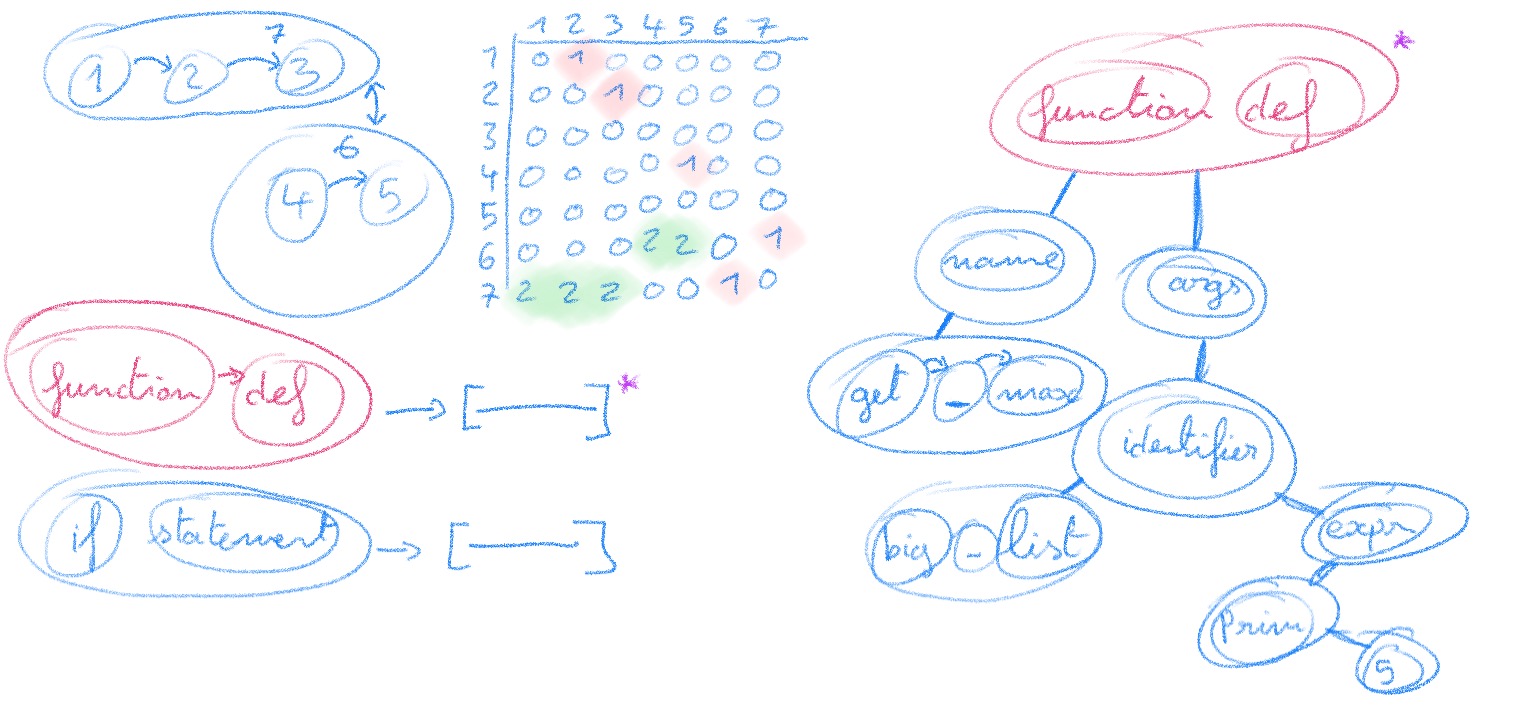 7
1 2 3
6
4 5
1 2 3 4 5 6 7
1 0 1 0 0 0 0 0
2 0 0 1 0 0 0 0
3 0 0 0 0 0 0 0
4 0 0 0 0 1 0 0
5 0 0 0 0 0 0 0
6 0 0 0 2 2 0 1
7 2 2 2 0 0 1 0
function def
*
if statement
function def
*
name
args
get _ max
identifier
big _ list
expr
Prim
5